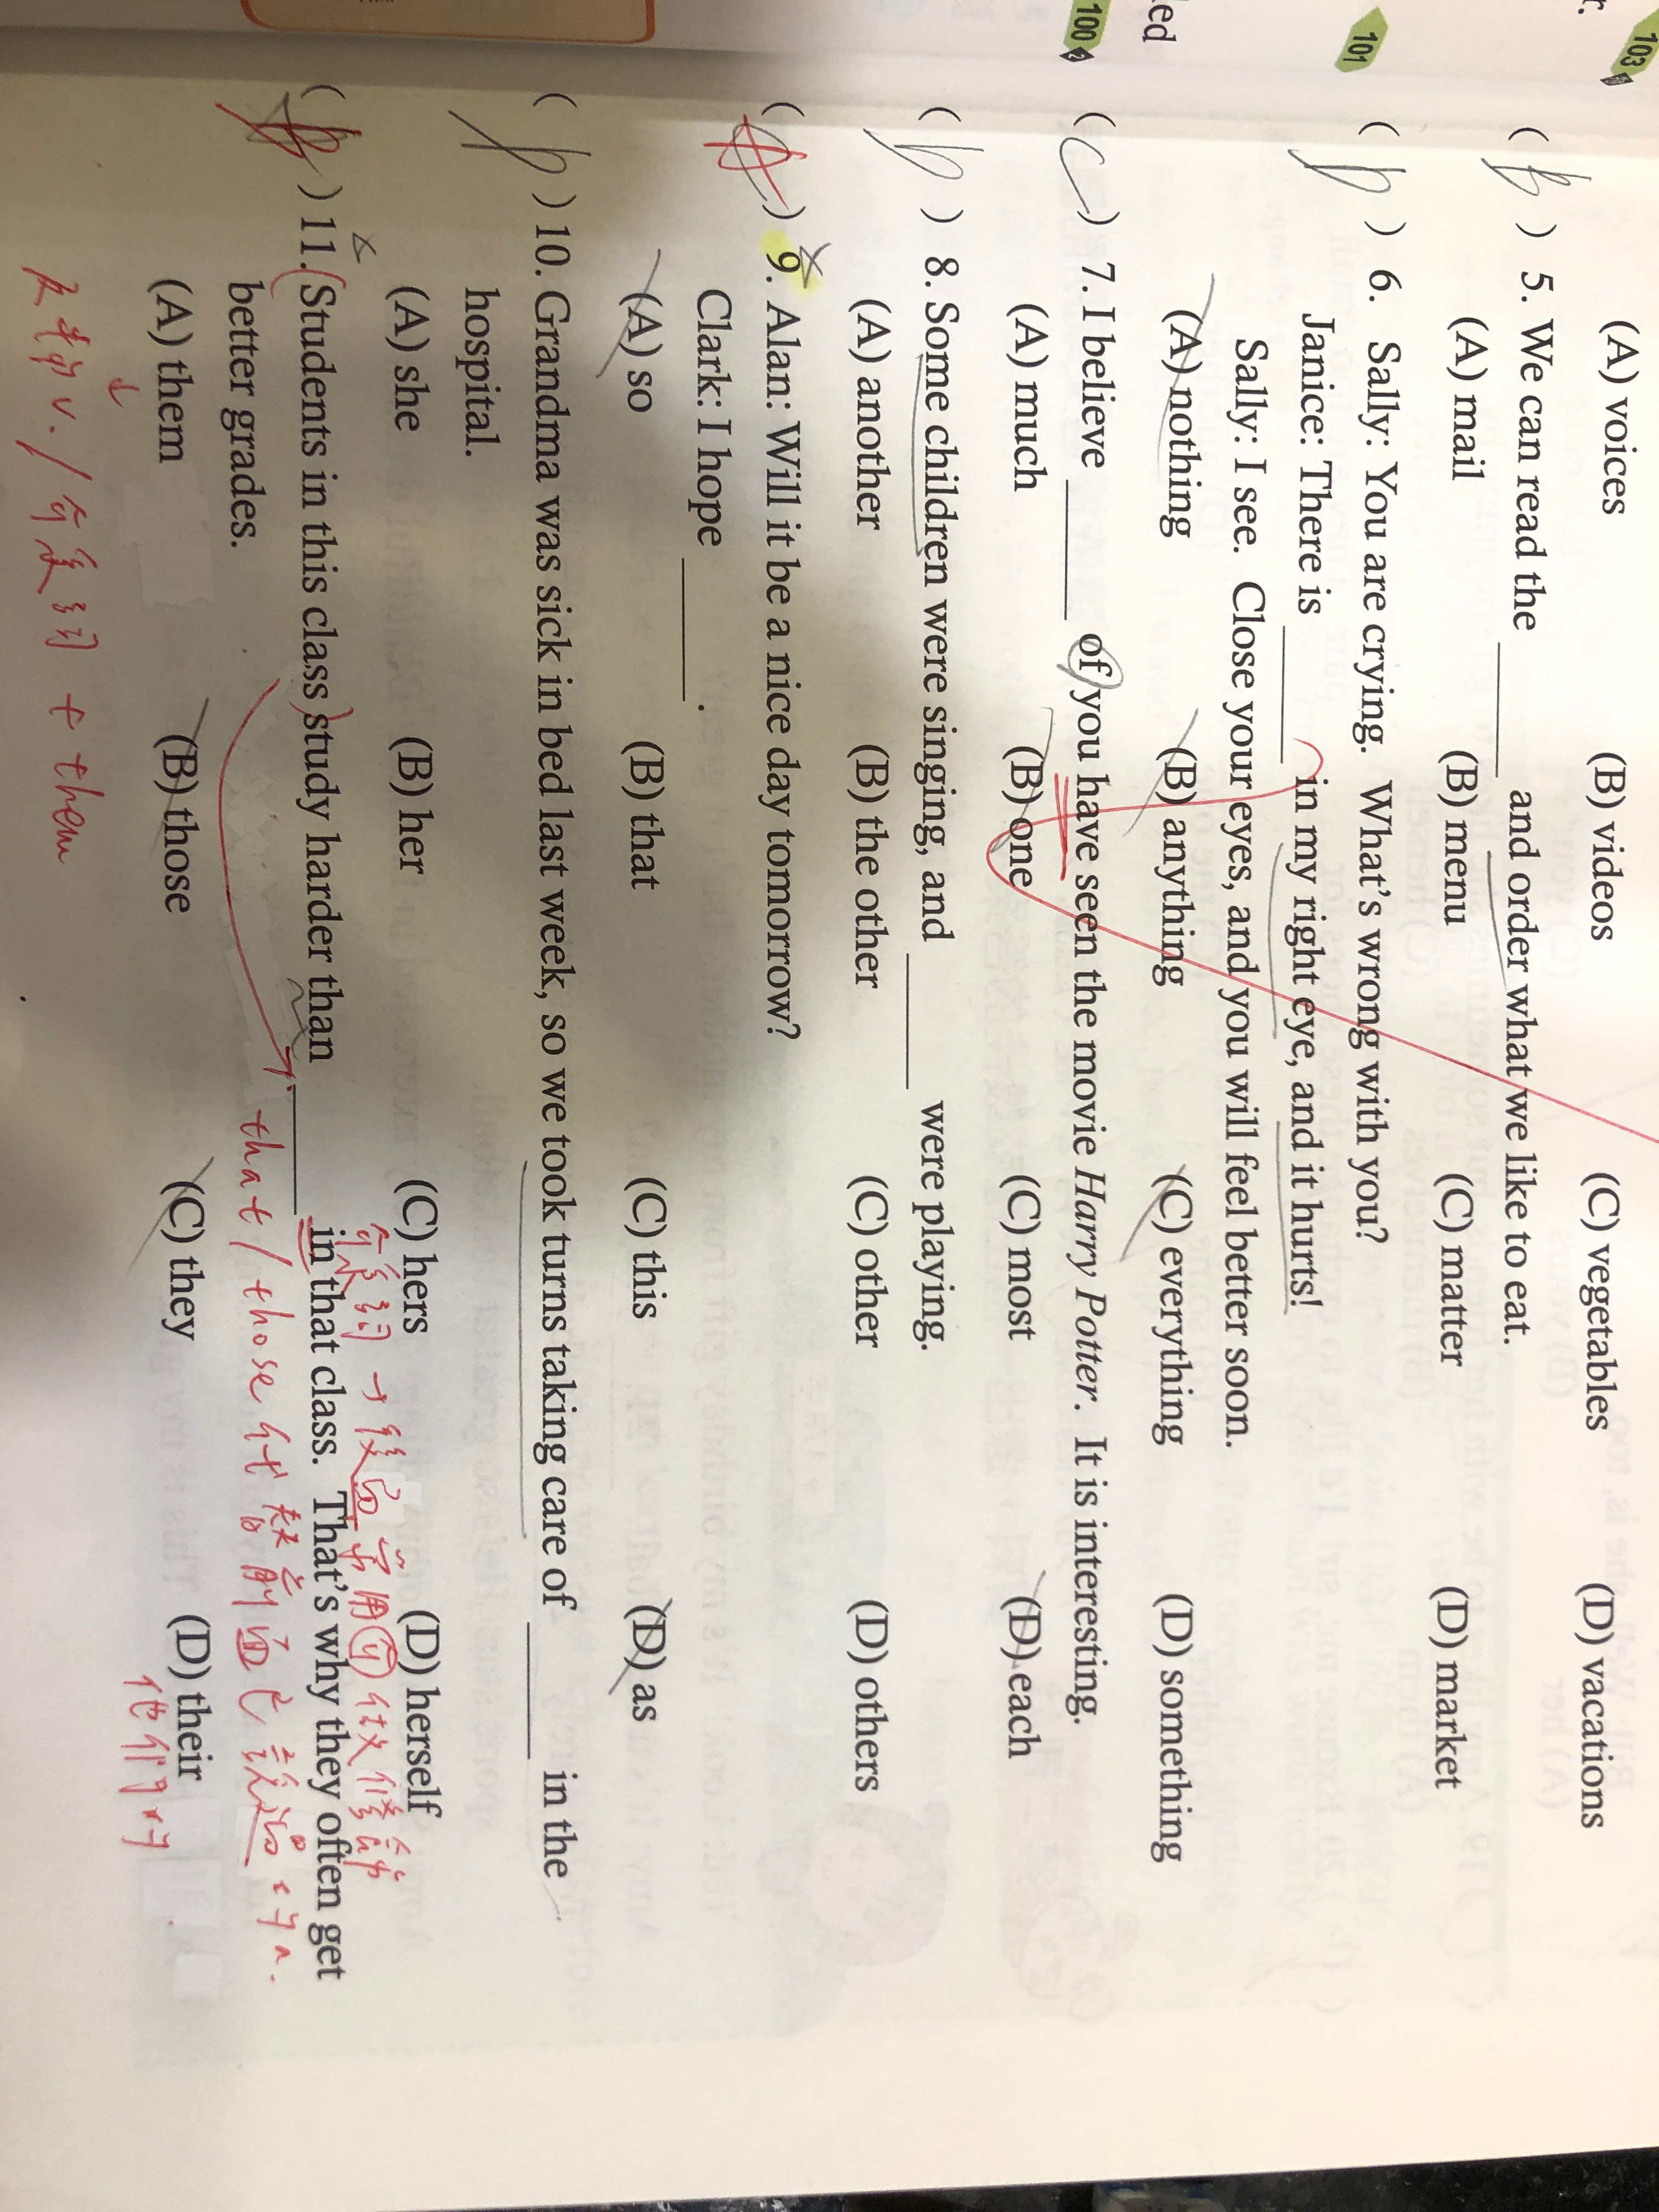 103
(A) voices (B) videos (C) vegetables (D) vacations
( b ) 5. We can read the ______ and order what we like to eat.
(A) mail (B) menu (C) matter (D) market
101
( b ) 6. Sally: You are crying. What's wrong with you?
Janice: There is ______ in my right eye, and it hurts!
Sally: I see. Close your eyes, and you will feel better soon.
(A) nothing (B) anything (C) everything (D) something
ed
100
( c ) 7. I believe ______ of you have seen the movie Harry Potter. It is interesting.
(A) much (B) one (C) most (D) each
( b ) 8. Some children were singing, and ______ were playing.
(A) another (B) the other (C) other (D) others
( A ) 9. Alan: Will it be a nice day tomorrow?
Clark: I hope ______.
(A) so (B) that (C) this (D) as
( b ) 10. Grandma was sick in bed last week, so we took turns taking care of ______ in the
hospital.
(A) she (B) her (C) hers (D) herself
後面常用 修飾
( b ) 11. Students in this class study harder than ______ in that class. That's why they often get
better grades.
that / those 代替前面已
(A) them (B) those (C) they (D) their
他們的
v. / 介系詞 + them